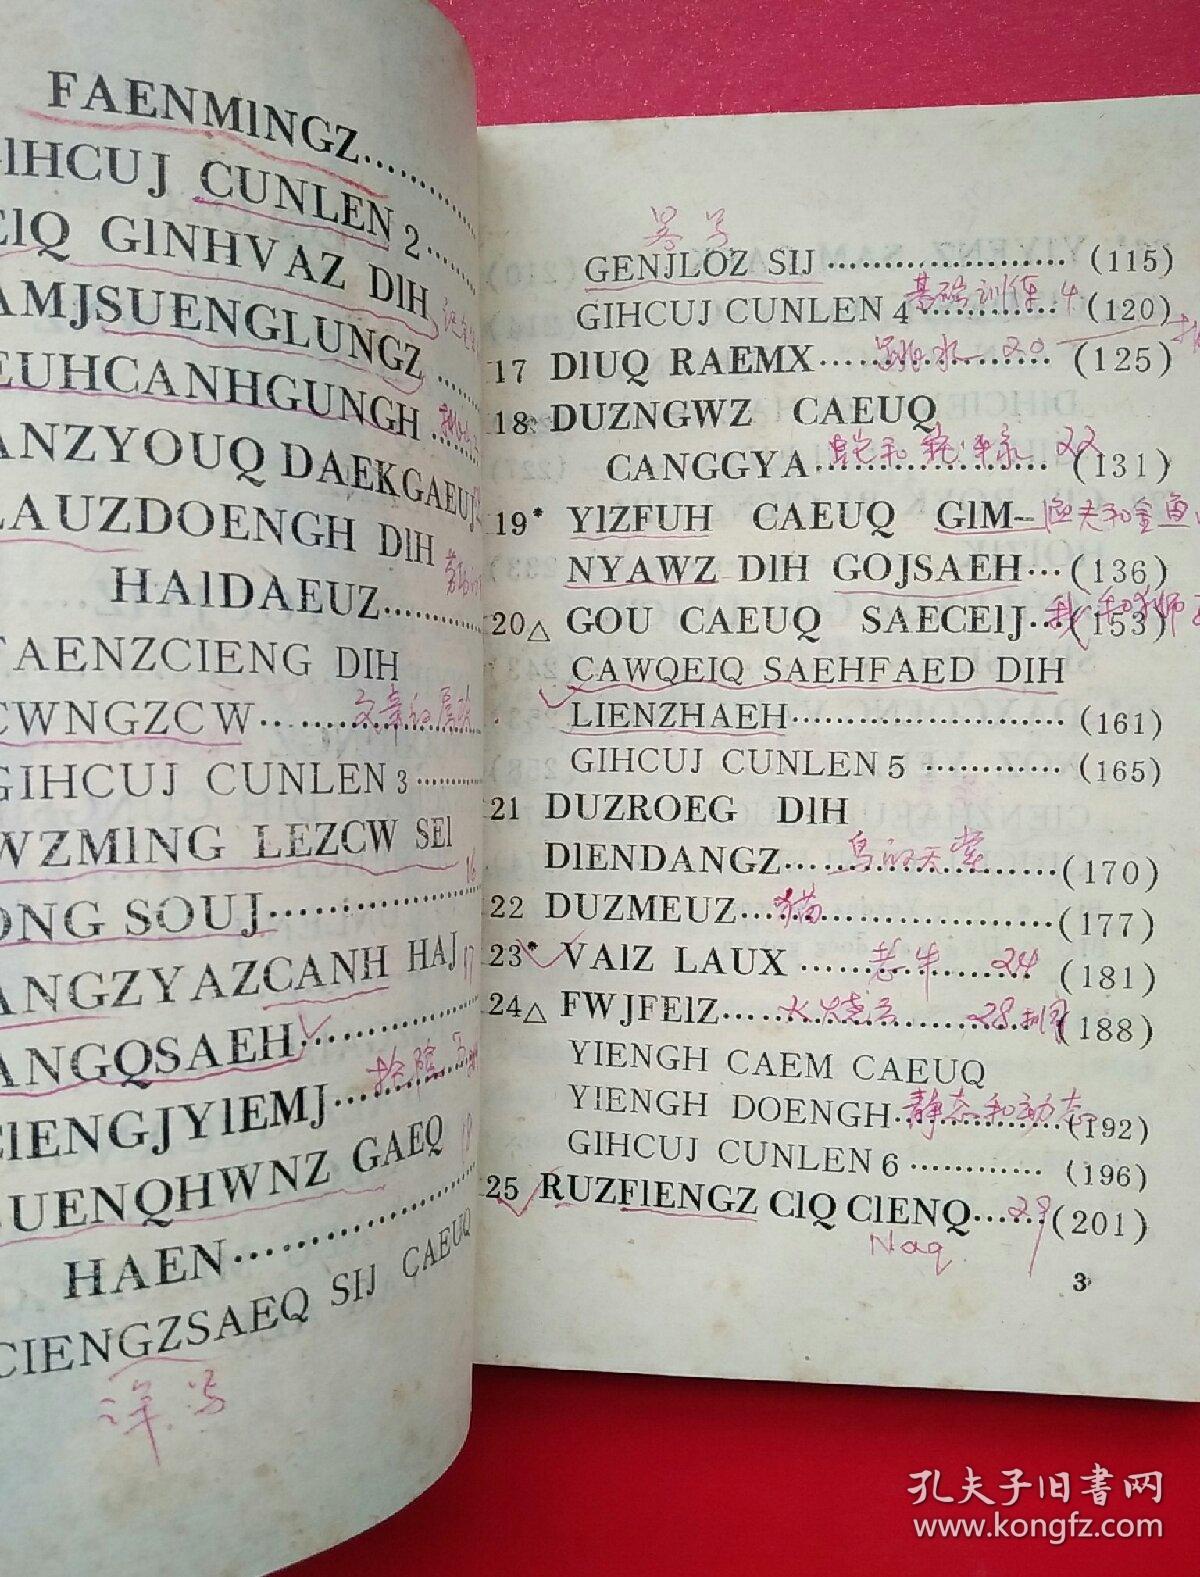 FAENMINGZ
GIHCUJ CUNLEN 2
GINHVAZ DIH
SUENGLUNGZ
EUHCANHGUNGH
ANZYOUQ DAEKGAEUJ
LAUZDOENGH DIH
HAIDAEUZ
FAENZCIENG DIH
CWNGZCW
文章的層次
GIHCUJ CUNLEN 3
WZMING LEZCW SEI
16
ONG SOUJ
ANGZYAZCANH HAJ
17
ANGQSAEH
CIENGJYIEMJ
UENQHWNZ GAEQ
18
HAEN
CIENGZSAEQ SIJ CAEUQ
GENJLOZ SIJ (115)
基础训练 4
GIHCUJ CUNLEN 4 (120)
17 DIUQ RAEMX 跳水 20 (125)
18 DUZNGWZ CAEUQ
CANGGYA 22 (131)
19* YIZFUH CAEUQ GIM-
渔夫和金鱼
NYAWZ DIH GOJSAEH (136)
20△ GOU CAEUQ SAECEIJ (153)
CAWQEIQ SAEHFAED DIH
LIENZHAEH (161)
GIHCUJ CUNLEN 5 (165)
21 DUZROEG DIH
DIENDANGZ 鸟的天堂 (170)
22 DUZMEUZ 猫 (177)
23* VAIZ LAUX 老牛 24 (181)
24△ FWJFEIZ 火烧云 28 (188)
YIENGH CAEM CAEUQ
YIENGH DOENGH 静态和动态 (192)
GIHCUJ CUNLEN 6 (196)
25 RUZFIENGZ CIQ CIENQ 29 (201)
Naq
3
孔夫子旧书网
www.kongfz.com